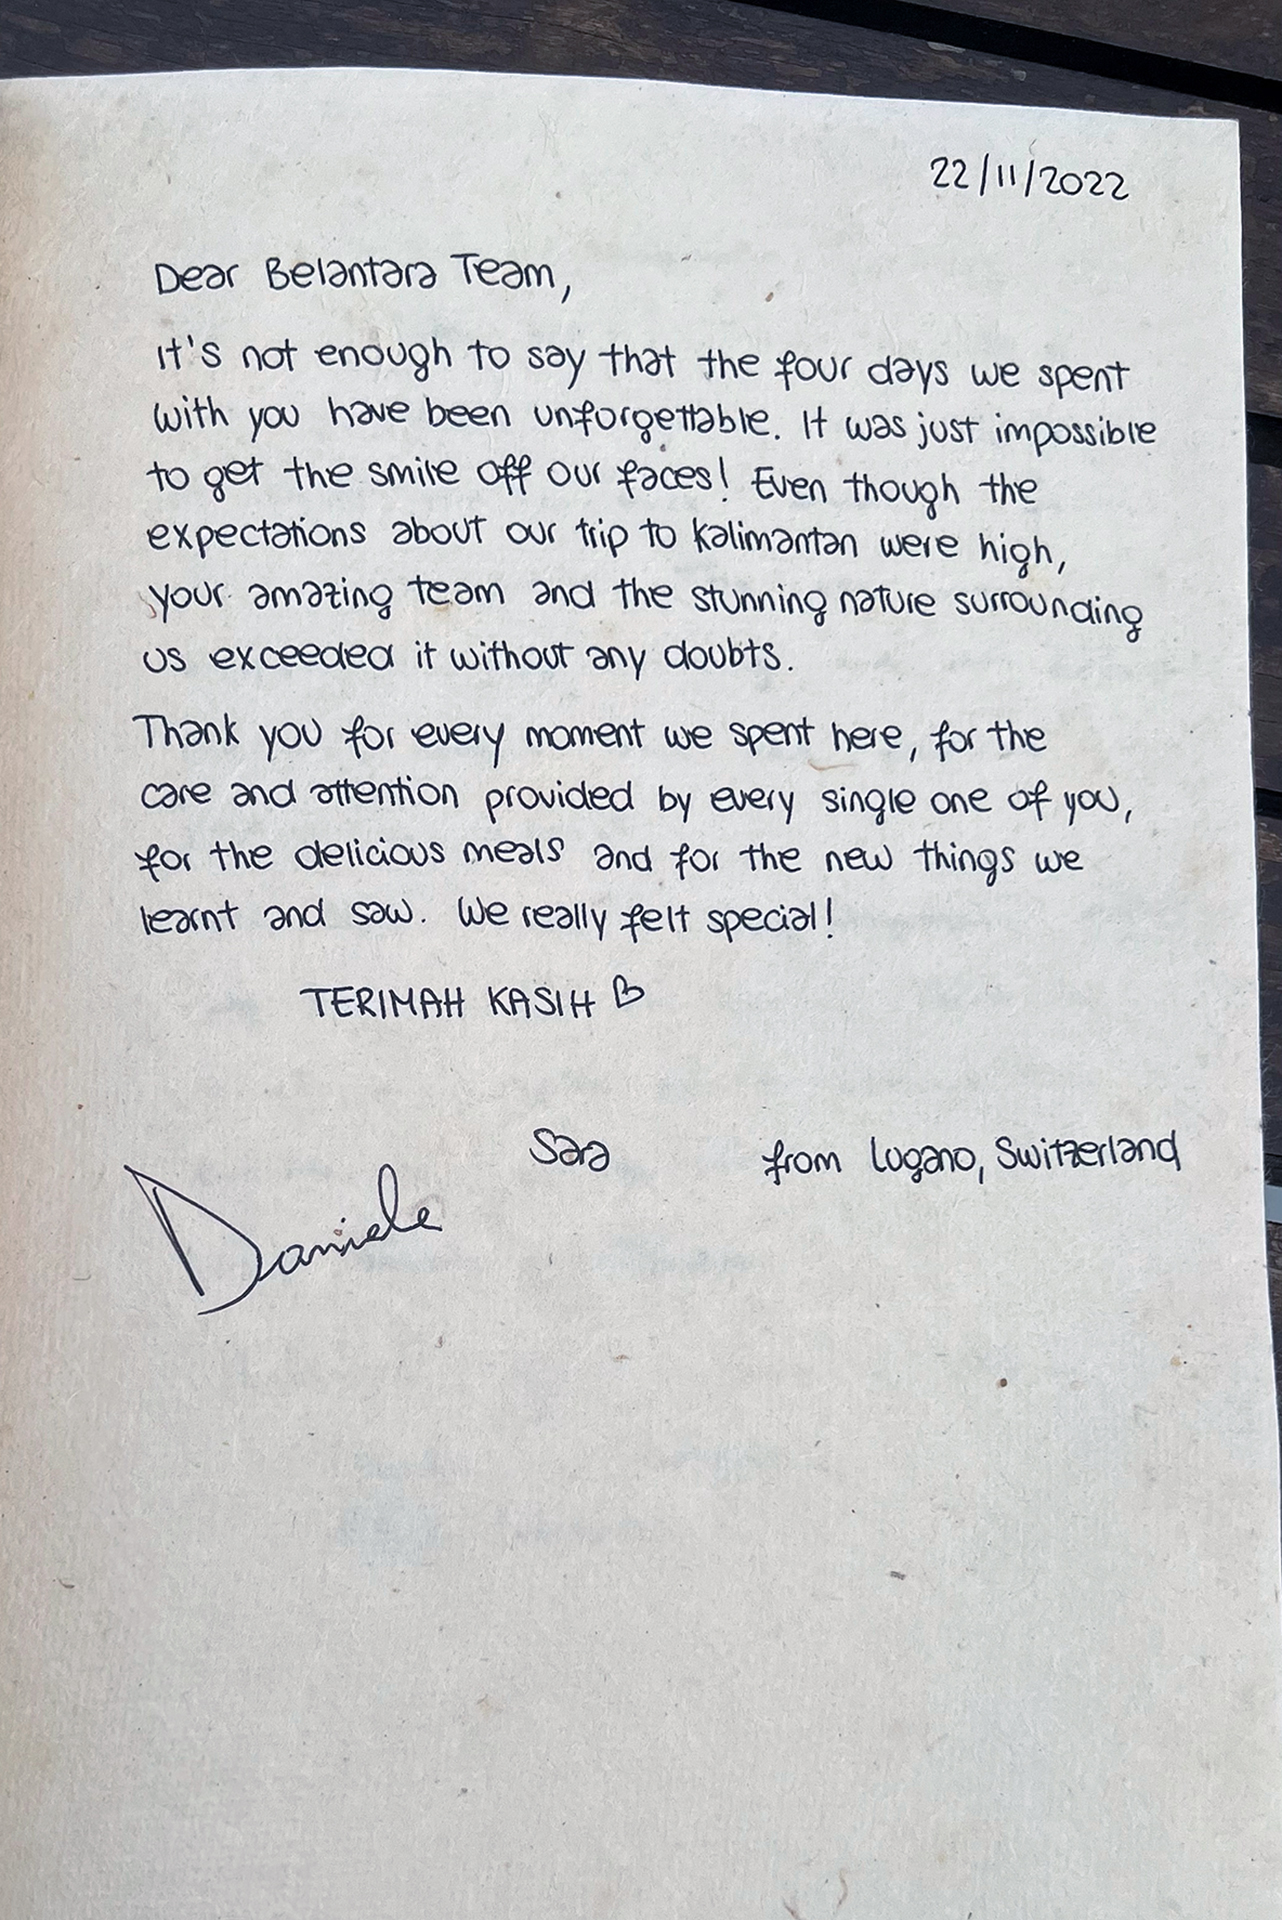 22/11/2022
Dear Belantara Team,
it's not enough to say that the four days we spent
with you have been unforgettable. It was just impossible
to get the smile off our faces! Even though the
expectations about our trip to Kalimantan were high,
your amazing team and the stunning nature surrounding
us exceeded it without any doubts.
Thank you for every moment we spent here, for the
care and attention provided by every single one of you,
for the delicious meals and for the new things we
learnt and saw. We really felt special!
TERIMAH KASIH ♡
Sara from Lugano, Switzerland
Daniele